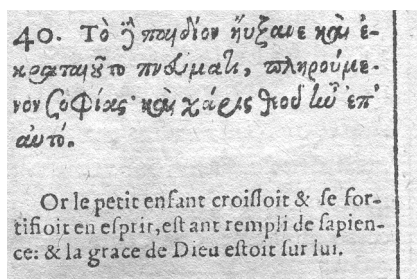 40. Τὸ ἢ παιδίον ἤυξανε καὶ ἐ-
κραταιοῦτο πνεύματι, πληρούμε-
νον ζοφίας· καὶ χάρις θεοῦ ἦν ἐπ'
αὐτό.
Or le petit enfant croiſſoit & ſe for-
tifioit en eſprit, eſtant rempli de ſapien-
ce: & la grace de Dieu eſtoit ſur lui.